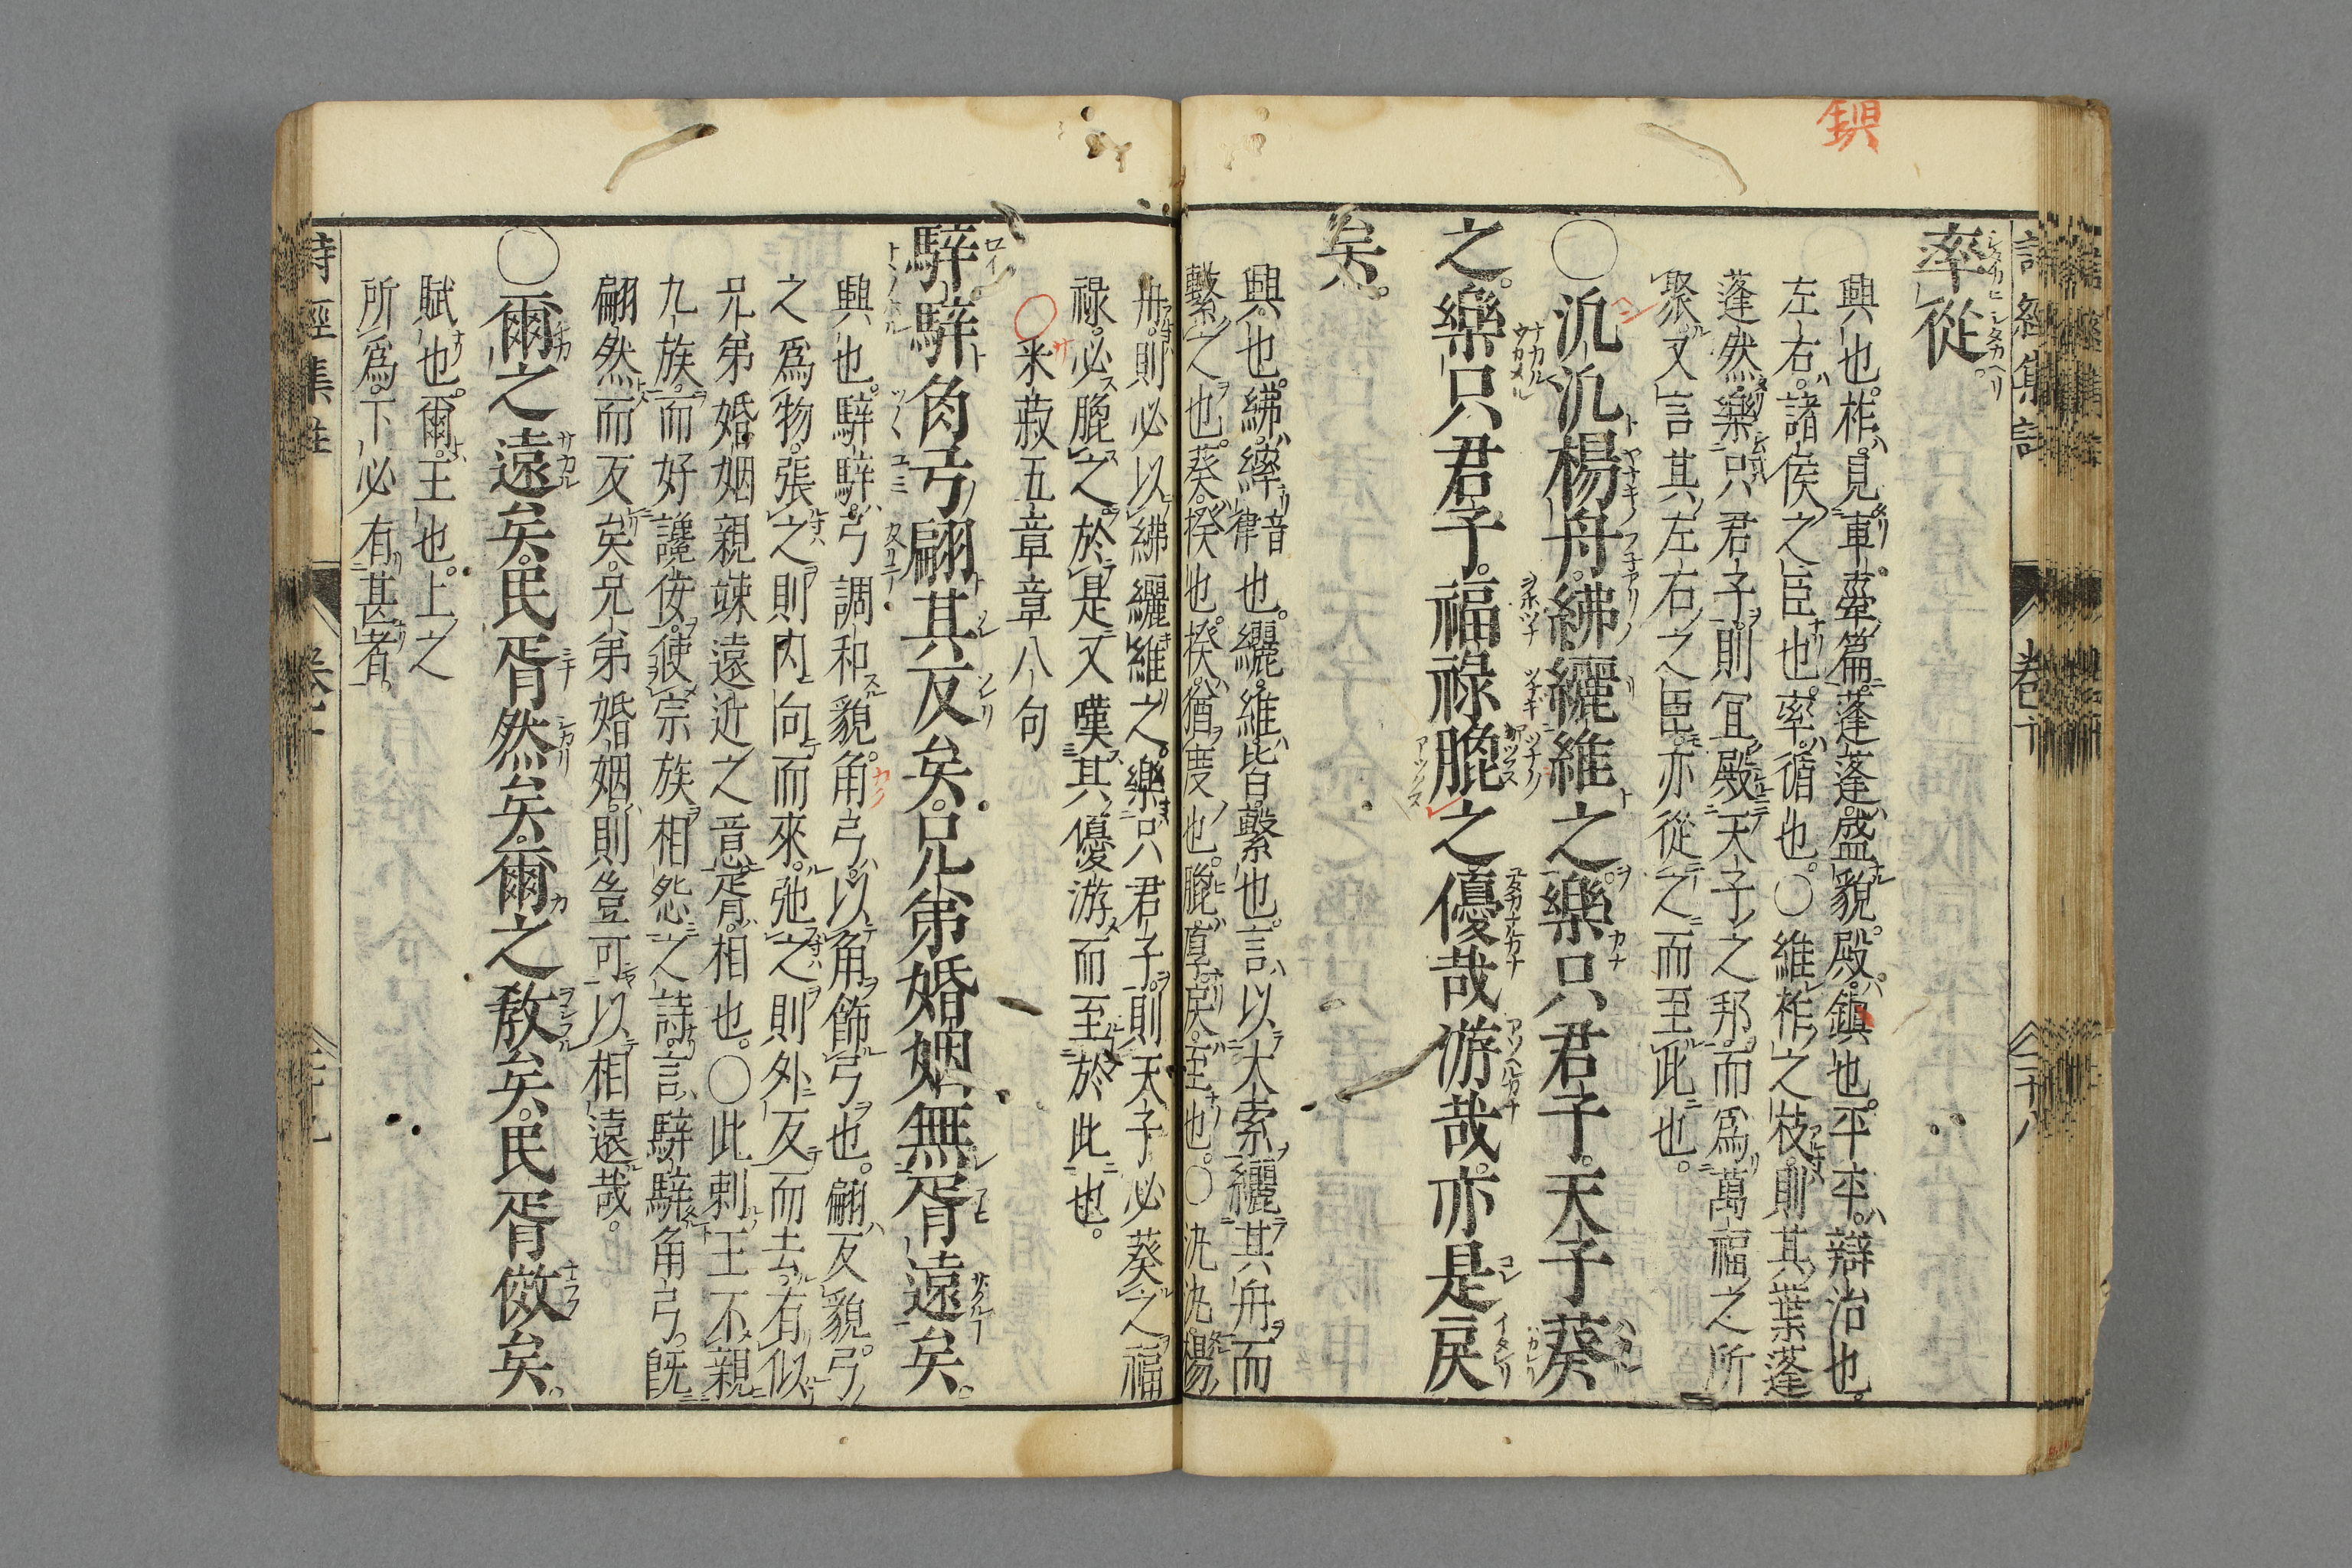 鎭
率從。
興也。柞。見車舝篇。蓬蓬。盛貌。殿。鎮也。平平。辯治也。
左右。諸侯之臣也。率。循也。○維柞之枝。則其葉蓬
蓬然。樂只君子。則冝殿天子之邦。而爲萬福之所
聚。又言其左右之臣。亦從之而至此也。
○汎汎楊舟。紼纚維之。樂只君子。天子葵
之。樂只君子。福祿膍之。優哉游哉。亦是戾
矣。
興也。紼。繂音律也。纚。維。皆繫也。言以大索纚其舟而
繫之也。葵。揆也。揆。猶度也。膍。厚。戾。至也。○汎汎楊
舟。則必以紼纚維之。樂只君子。則天子必葵之。福
祿。必膍之。於是又嘆其優游而至於此也。
○采菽五章章八句
騂騂角弓。翩其反矣。兄弟婚姻。無胥遠矣。
興也。騂騂。弓調和貌。角弓。以角飾弓也。翩反貌。弓
之爲物。張之則内向而來。弛之則外反而去。有似
兄弟婚姻親竦遠近之意。胥。相也。○此刺王不親
九族。而好讒佞。使宗族相怨之詩。言騂騂角弓。旣
翩然而反矣。兄弟婚姻。則豈可以相遠哉。
○爾之遠矣。民胥然矣。爾之敎矣。民胥傚矣。
賦也。爾。王也。上之
所爲。下必有甚者。
詩經集註
卷十
二十八